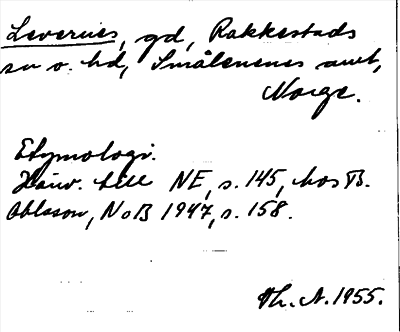 Levernes, gd, Rakkestads
sn o. hd, Smålenenes amt,
Norge.
Etymologi.
Hänv. till NE, s. 145, hos B.
Ohlsson, NoB 1947, s. 158.
Th. A. 1955.